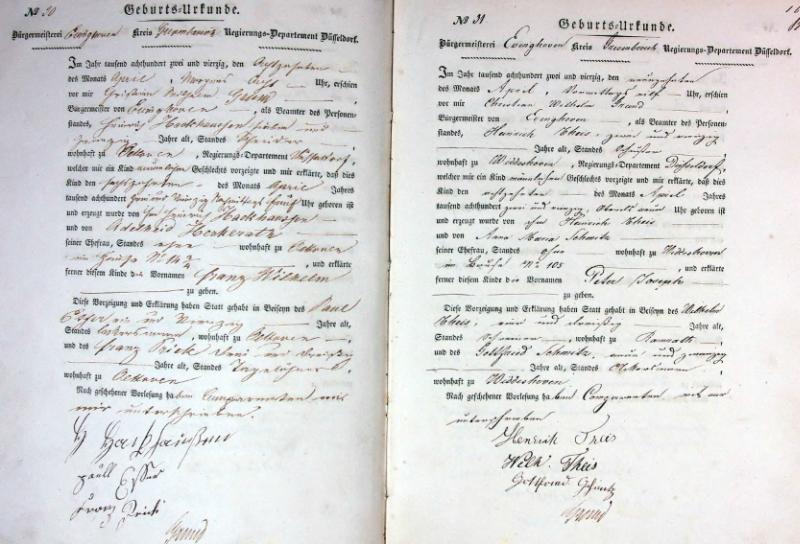 № 30
Geburts-Urkunde.
Bürgermeisterei Evinghoven Kreis Grevenbroich Regierungs-Departement Düsseldorf.
Im Jahr tausend achthundert zwei und vierzig, den Achtzehnten
des Monats April, Morgens Acht Uhr, erschien
vor mir Christian Wilhelm Grund
Bürgermeister von Evinghoven, als Beamter des Personen-
standes, Heinrich Hackhausen, sieben und
zwanzig Jahre alt, Standes
wohnhaft zu Oekoven, Regierungs-Departement Düsseldorf,
welcher mir ein Kind männlichen Geschlechts vorzeigte und mir erklärte, daß dies
Kind den siebzehnten des Monats April Jahres
tausend achthundert zwei und vierzig Nachmittags fünf Uhr geboren ist
und erzeugt wurde von ihm Heinrich Hackhausen
und von Adelheid
seiner Ehefrau, Standes ohne wohnhaft zu Oekoven
im Hause No 142, und erklärte
ferner diesem Kinde den Vornamen Franz Wilhelm
zu geben.
Diese Vorzeigung und Erklärung haben Statt gehabt in Beiseyn des Paul
Esser und vierzig Jahre alt,
Standes Ackersmann, wohnhaft zu Oekoven
und des Franz drei und dreißig
Jahre alt, Standes Tagelöhner
wohnhaft zu Oekoven
Nach geschehener Vorlesung haben Comparenten mit
mir unterschrieben.
H Hackhausen
paull Esser
Franz
Grund
№ 31
Geburts-Urkunde.
Bürgermeisterei Evinghoven Kreis Grevenbroich Regierungs-Departement Düsseldorf.
Im Jahr tausend achthundert zwei und vierzig, den neunzehnten
des Monats April, Vormittags elf Uhr, erschien
vor mir Christian Wilhelm Grund
Bürgermeister von Evinghoven, als Beamter des Personen-
standes, Heinrich Theis, zwei und vierzig
Jahre alt, Standes
wohnhaft zu Widdeshoven, Regierungs-Departement Düsseldorf,
welcher mir ein Kind männlichen Geschlechts vorzeigte und mir erklärte, daß dies
Kind den achtzehnten des Monats April Jahres
tausend achthundert zwei und vierzig Abends neun Uhr geboren ist
und erzeugt wurde von ihm Heinrich Theis
und von Anna Maria Schmitz
seiner Ehefrau, Standes ohne wohnhaft zu Widdeshoven
im Hause No 105, und erklärte
ferner diesem Kinde den Vornamen Peter Joseph
zu geben.
Diese Vorzeigung und Erklärung haben Statt gehabt in Beiseyn des Wilhelm
Theis, ein und dreißig Jahre alt,
Standes, wohnhaft zu Ramrath
und des Gottfried Schmitz, neun und zwanzig
Jahre alt, Standes Ackersmann
wohnhaft zu Widdeshoven
Nach geschehener Vorlesung haben Comparenten mit mir
unterschrieben
Henrich Teis
Wilh. Theis
Gottfried Schmitz
Grund